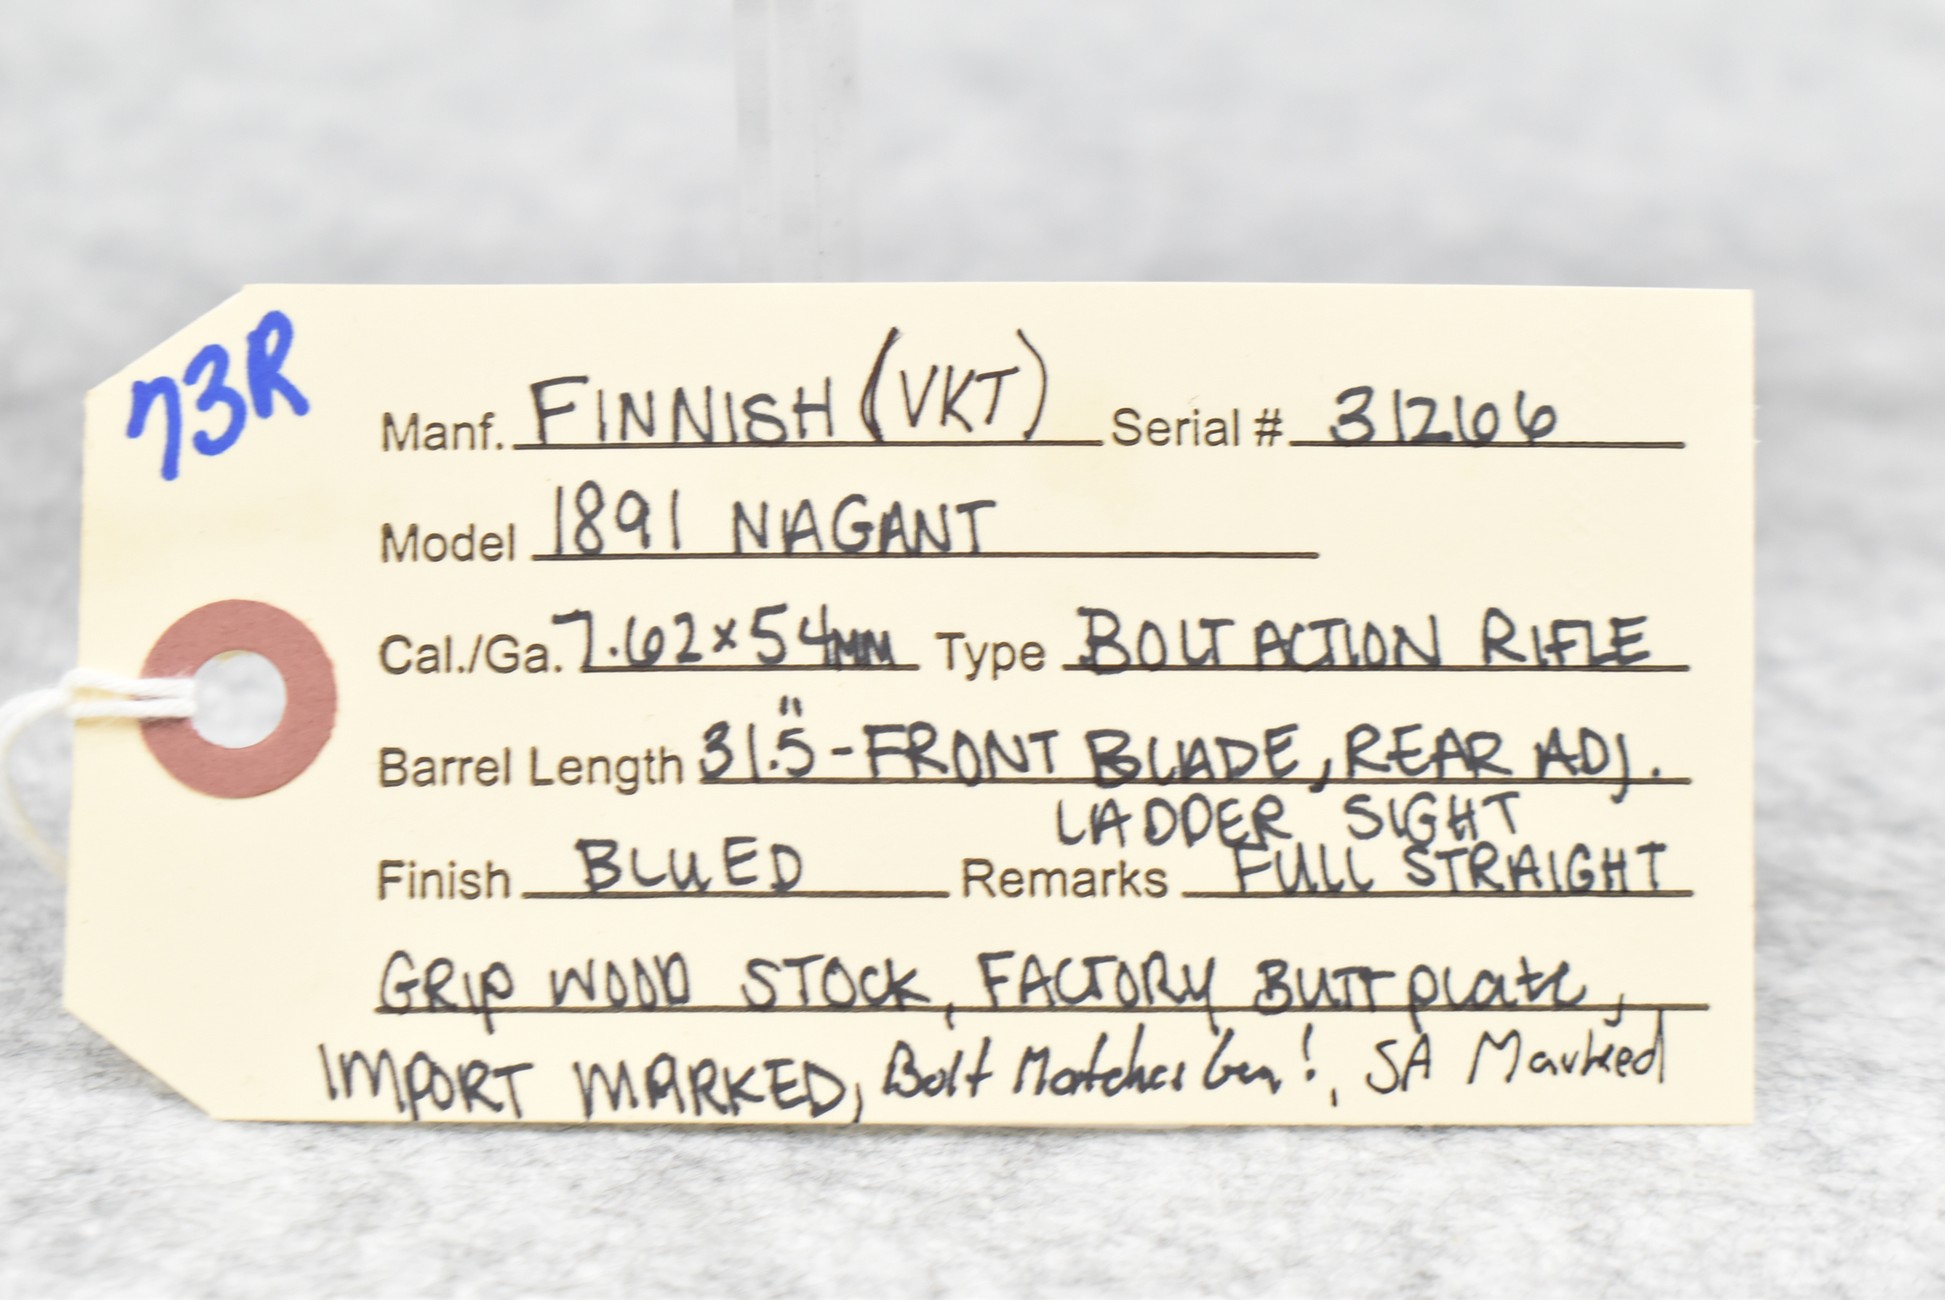 73R
Manf. FINNISH (VKT) Serial # 312166
Model 1891 NAGANT
Cal./Ga. 7.62x54MM Type BOLT ACTION RIFLE
Barrel Length 31.5" - FRONT BLADE, REAR ADJ.
LADDER SIGHT
Finish BLUED Remarks FULL STRAIGHT
GRIP WOOD STOCK, FACTORY BUTT plate,
IMPORT MARKED, Bolt Matches Gun!, SA Marked